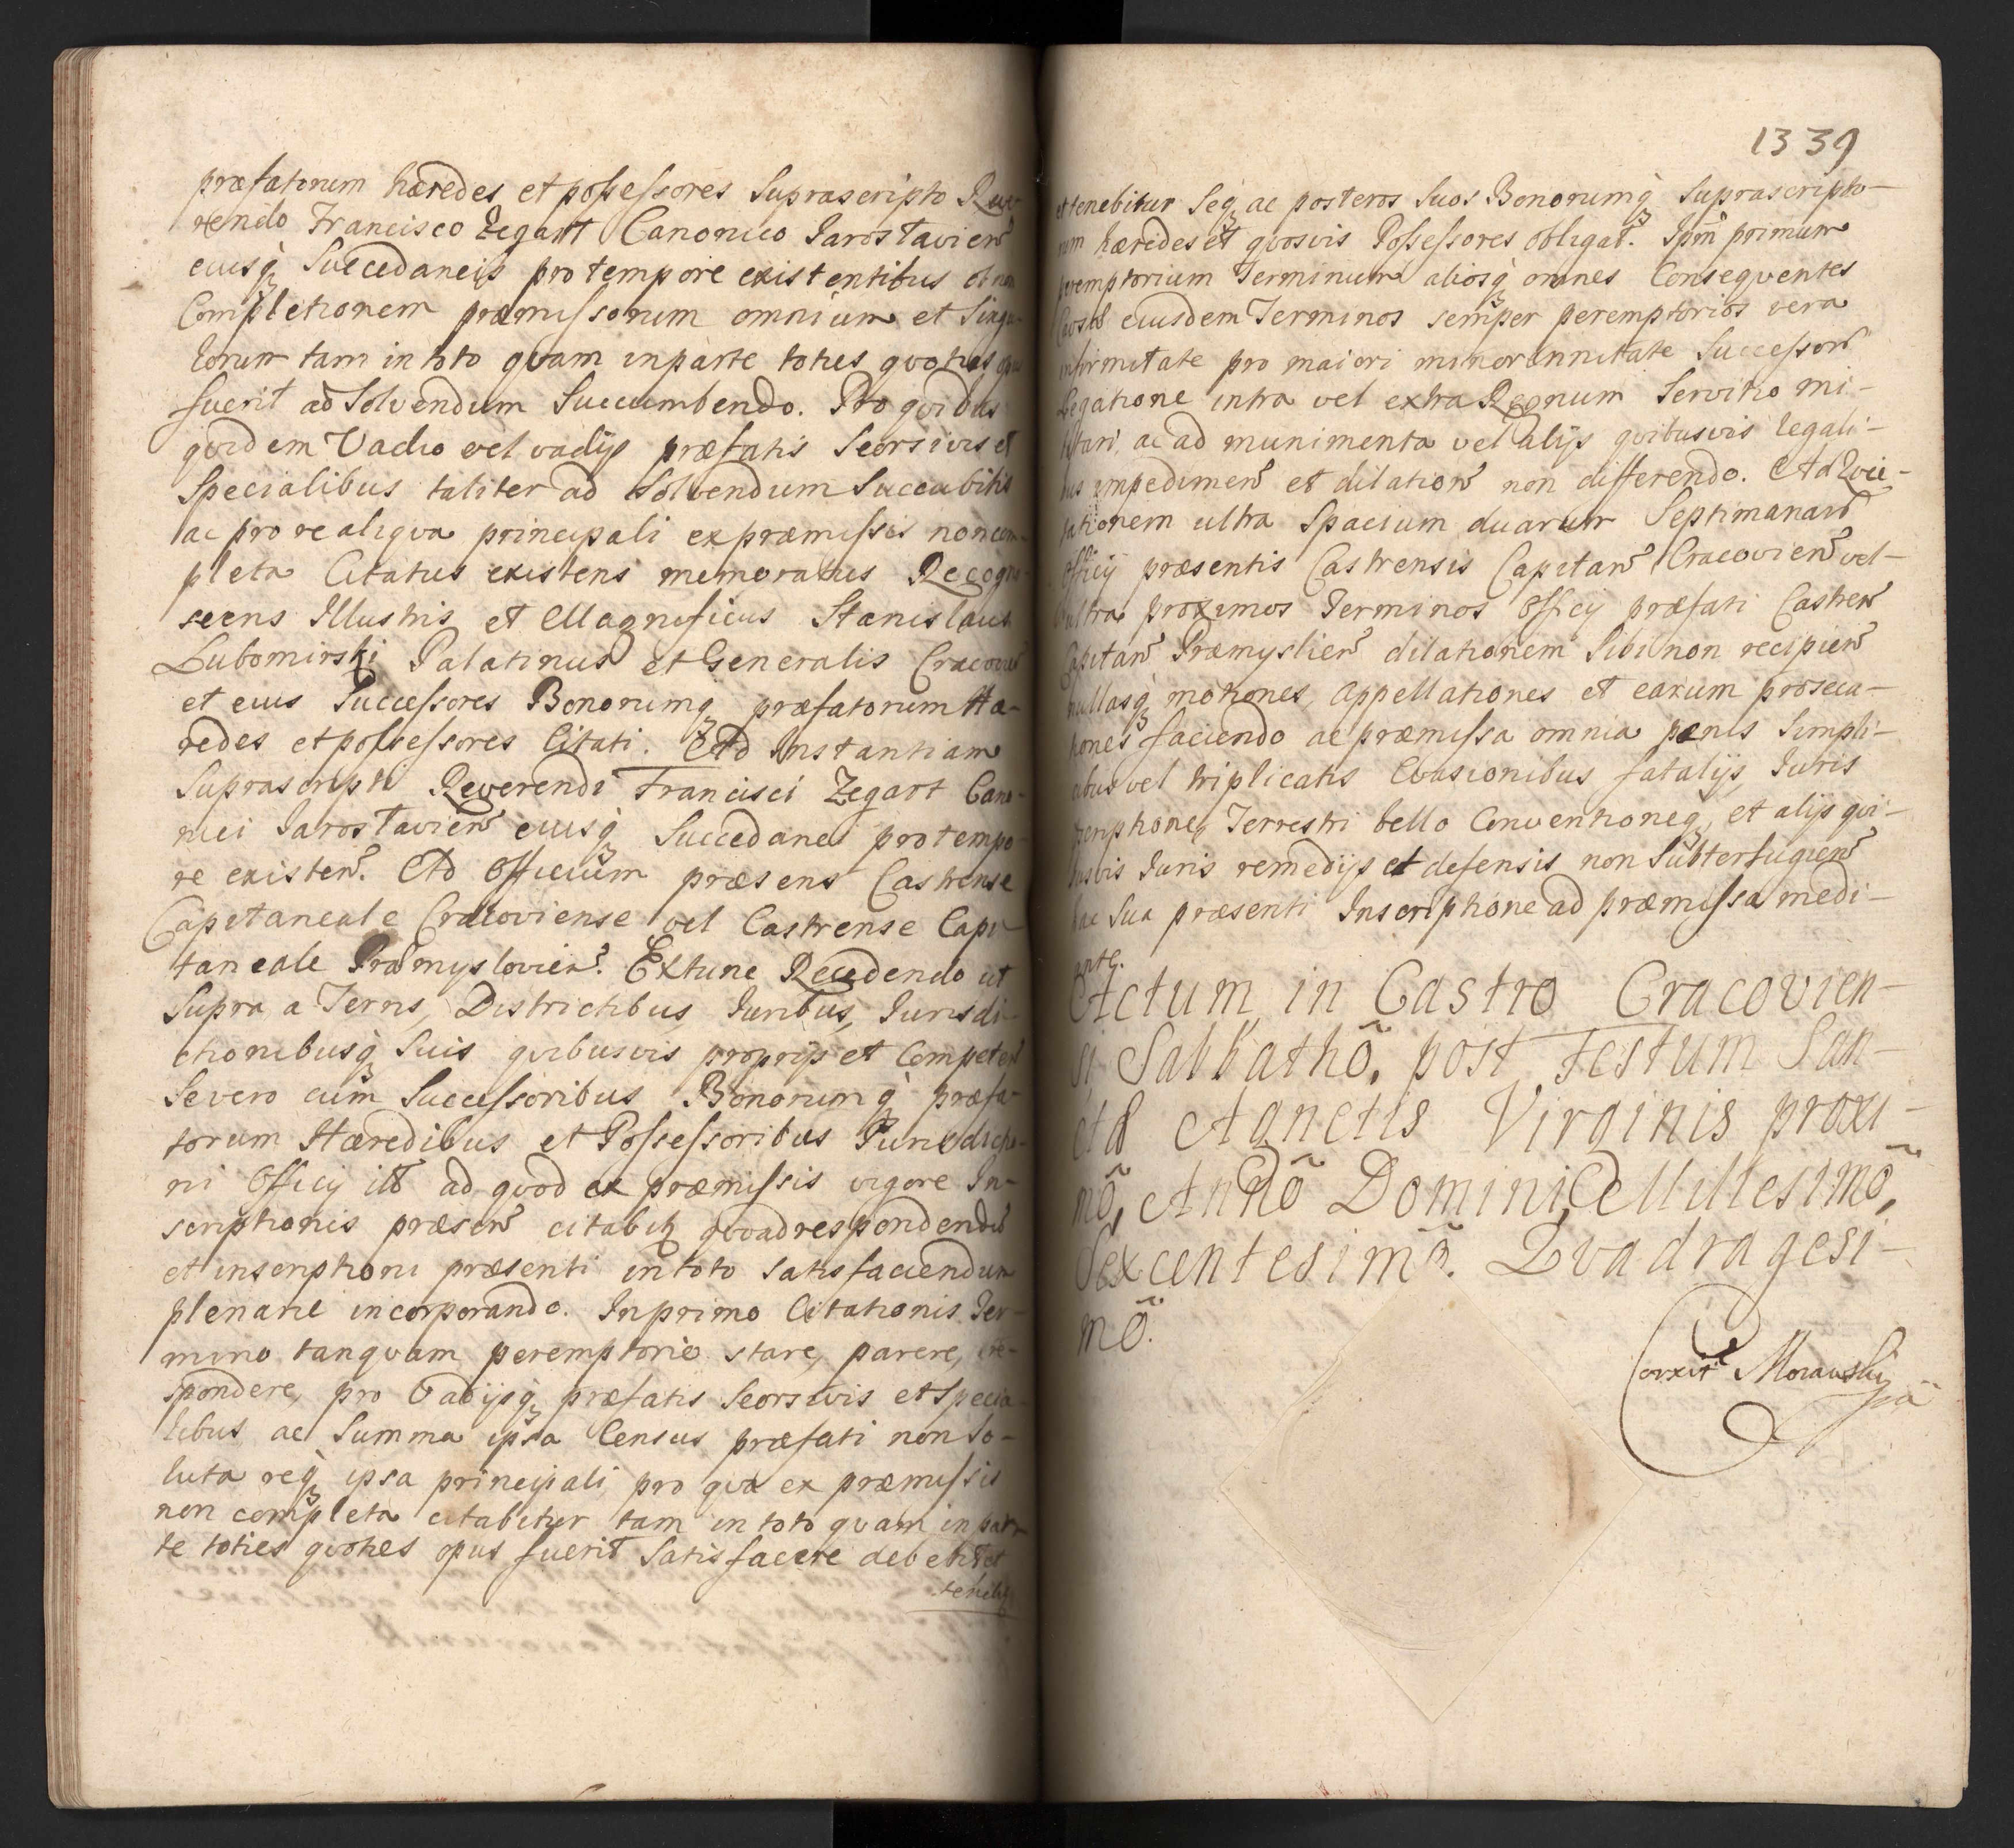 præfatorum hæredes et possessores Suprascripto Reve-
rendo Francisco Zegart Canonico Jaroslavien
eiusq Succedaneis pro tempore existentibus ob non
Completionem præmissorum omnium et Singu-
lorum tam in toto quam in parte toties quoties opus
fuerit ad Solvendum Succumbendo. Pro quibus
quidem Vadio vel vadijs præfatis Seorsivis et
Specialibus taliter ad Solvendum Succubitis
ac pro re aliqua principali ex præmissis non com-
pleta Citatus existens memoratus Recogno-
scens Illustris et Magnificus Stanislaus
Lubomirski Palatinus et Generalis Cracovien
et eius Successores Bonorumq præfatorum Hæ-
redes et possessores Citati. Ad Instantiam
Suprascripti Reverendi Francisci Zegart Cano-
nici Jaroslavien eiusq Succedanei pro tempo-
re existen. Ad Officium præsens Castrense
Capitaneale Cracoviense vel Castrense Capi-
taneale Præmyslovien. Extunc Recedendo ut
Supra a Terris, Districtibus, Juribus, Jurisdi-
ctionibusq Suis quibusvis proprijs et Competen
Se vero cum Successoribus Bonorumq præfa-
torum Hæredibus et Possessoribus Jurisdictio-
ni Officij ill ad quod ex præmissis vigore In-
scriptionis præsen citabitq quoad respondendū
et inscriptioni præsenti in toto satisfaciendum
plenarie incorporando. In primo Citationis Ter-
mino tanquam peremptorie stare, parere, re-
spondere, pro Vadijsq præfatis Seorsivis et Specia-
libus ac Summa ipsa Census præfati non So-
luta req ipsa principali pro qua ex præmissis
non completa citabitur tam in toto quam in par-
te toties quoties opus fuerit Satisfacere debebit et
tenebitq
1339
et tenebitur Seq ac posteros Suos Bonorumq Suprascripto-
rum hæredes et quosvis Possessores obligat. Ipm primum
peremptorium Terminum aliosq omnes Consequentes
eiusdem Terminos semper peremptorios vera
infirmitate pro maiori minorennitate Successorū
Legatione intra vel extra Regnum Servitio mi-
litari, ac ad munimenta vel alijs quibusvis legali-
bus impedimen et dilation non differendo. Ad Qvie-
tationem ultra Spacium duarum Septimanarū
Officij præsentis Castrensis Capitan Cracovien vel
ultra proximos Terminos Officij præfati Castren
Capitan Præmyslien dilationem Sibi non recipien
nullasq motiones, Appellationes et earum prosecu-
tiones faciendo ac præmissa omnia pænis Simpli-
cibus vel triplicatis Evasionibus fatalijs, Juris
præscriptioneq Terrestri bello Conventioneq, et alijs qui-
busvis Juris remedijs et defensis non Subterfugien
hac Sua præsenti Inscriptione ad præmissa medi-
ante.
Actum in Castro Cracovien-
si Sabbathō, post Festum San-
ctæ Agnetis Virginis proxi-
mō, Annō Domini, Millesimō,
Sexcentesimō. Qvadragesi-
mō.
Corrxit Morawski